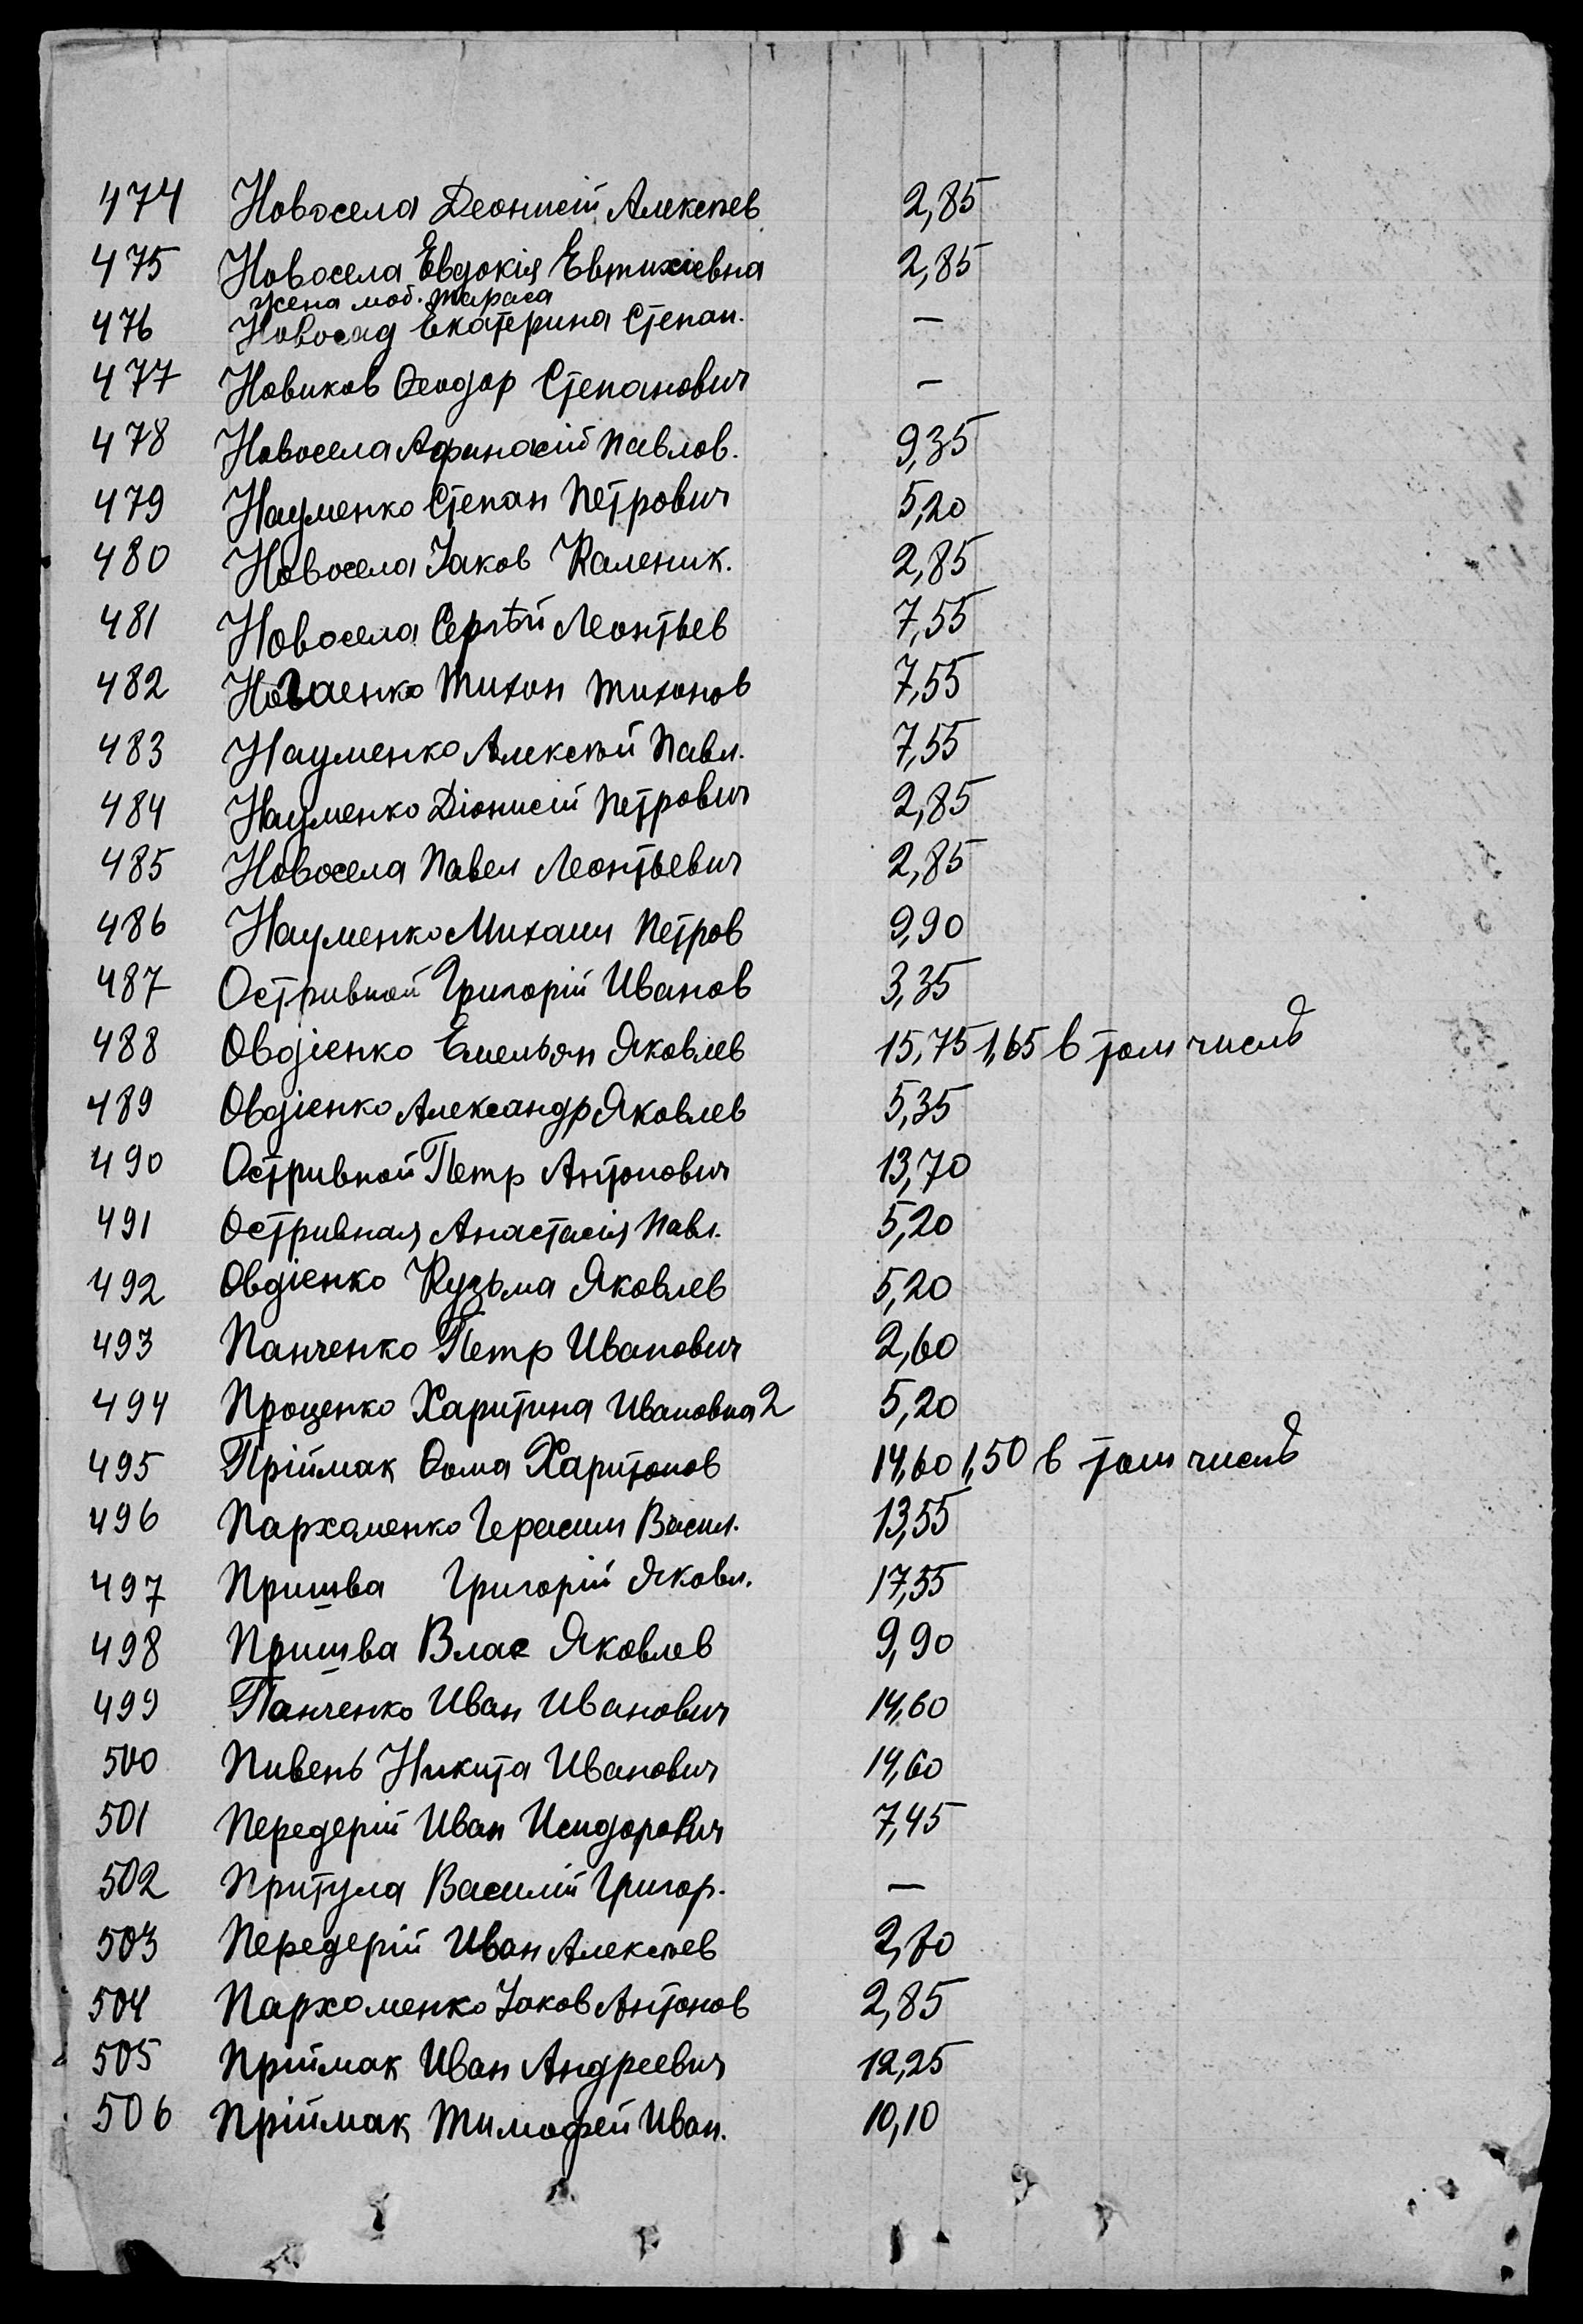 474 Новосела Деонисій Алексѣев 2,85
475 Новосела Евдокія Евтихіевна 2,85
жена моб. Тараса
476 Новосад Екатерина Степан. —
477 Новиков Ѳеодор Степанович —
478 Новосела Афанасій Павлов. 9,35
479 Науменко Степан Петрович 5,20
480 Новосела Іаков Каленик. 2,85
481 Новосела Сергѣй Леонтьев 7,55
482 Ногаенко Тихон Тихонов 7,55
483 Науменко Алексѣй Павл. 7,55
484 Науменко Діонисій Петрович 2,85
485 Новосела Павел Леонтьевич 2,85
486 Науменко Михаил Петров 9,90
487 Остривной Григорій Иванов 3,35
488 Овдіенко Емельян Яковлев 15,75 1,65 в том числѣ
489 Овдіенко Александр Яковлев 5,35
490 Остривной Петр Антонович 13,70
491 Остривная Анастасія Павл. 5,20
492 Овдіенко Кузьма Яковлев 5,20
493 Панченко Петр Иванович 2,60
494 Проценко Харитина Ивановна 2 5,20
495 Пріймак Ѳома Харитонов 14,60 1,50 в том числѣ
496 Пархоменко Герасим Васил. 13,55
497 Пришва Григорій Яковл. 17,55
498 Пришва Влас Яковлев 9,90
499 Панченко Иван Иванович 14,60
500 Пивень Никита Иванович 14,60
501 Передерій Иван Исидорович 7,45
502 Притула Василій Григор. —
503 Передерій Иван Алексѣев
504 Пархоменко Іаков Антонов 2,85
505 Пріймак Иван Андреевич 12,25
506 Пріймак Тимофей Иван. 10,10